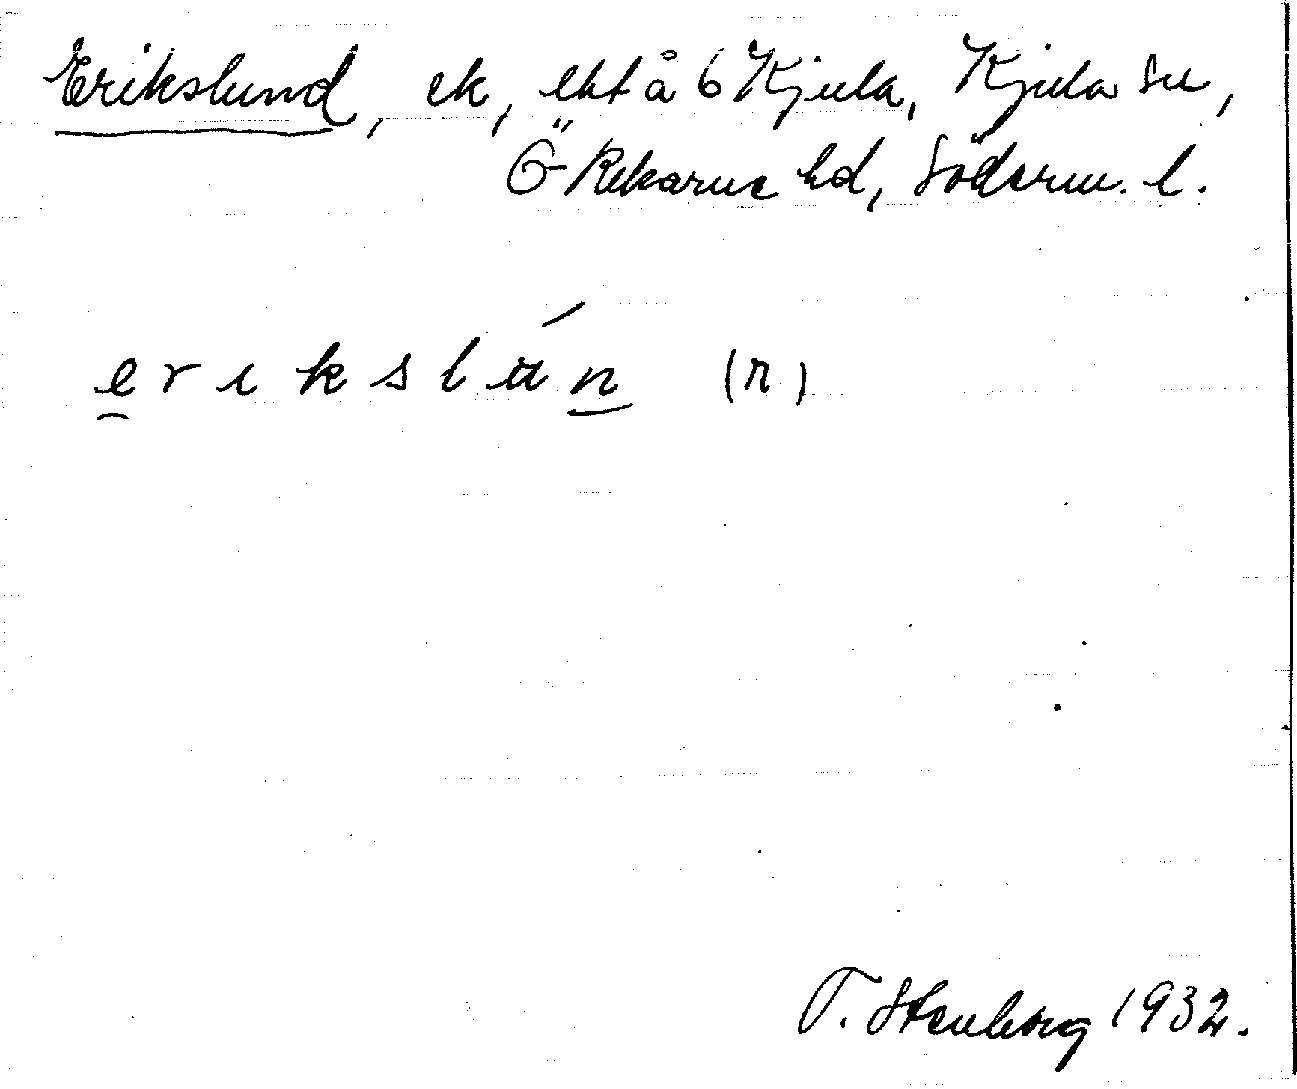 Erikslund, ek, ekt å 6 Kjula, Kjula sn,
Ö Rekarne hd, Söderm. l.
erikslún (n)
T. Stenberg 1932.